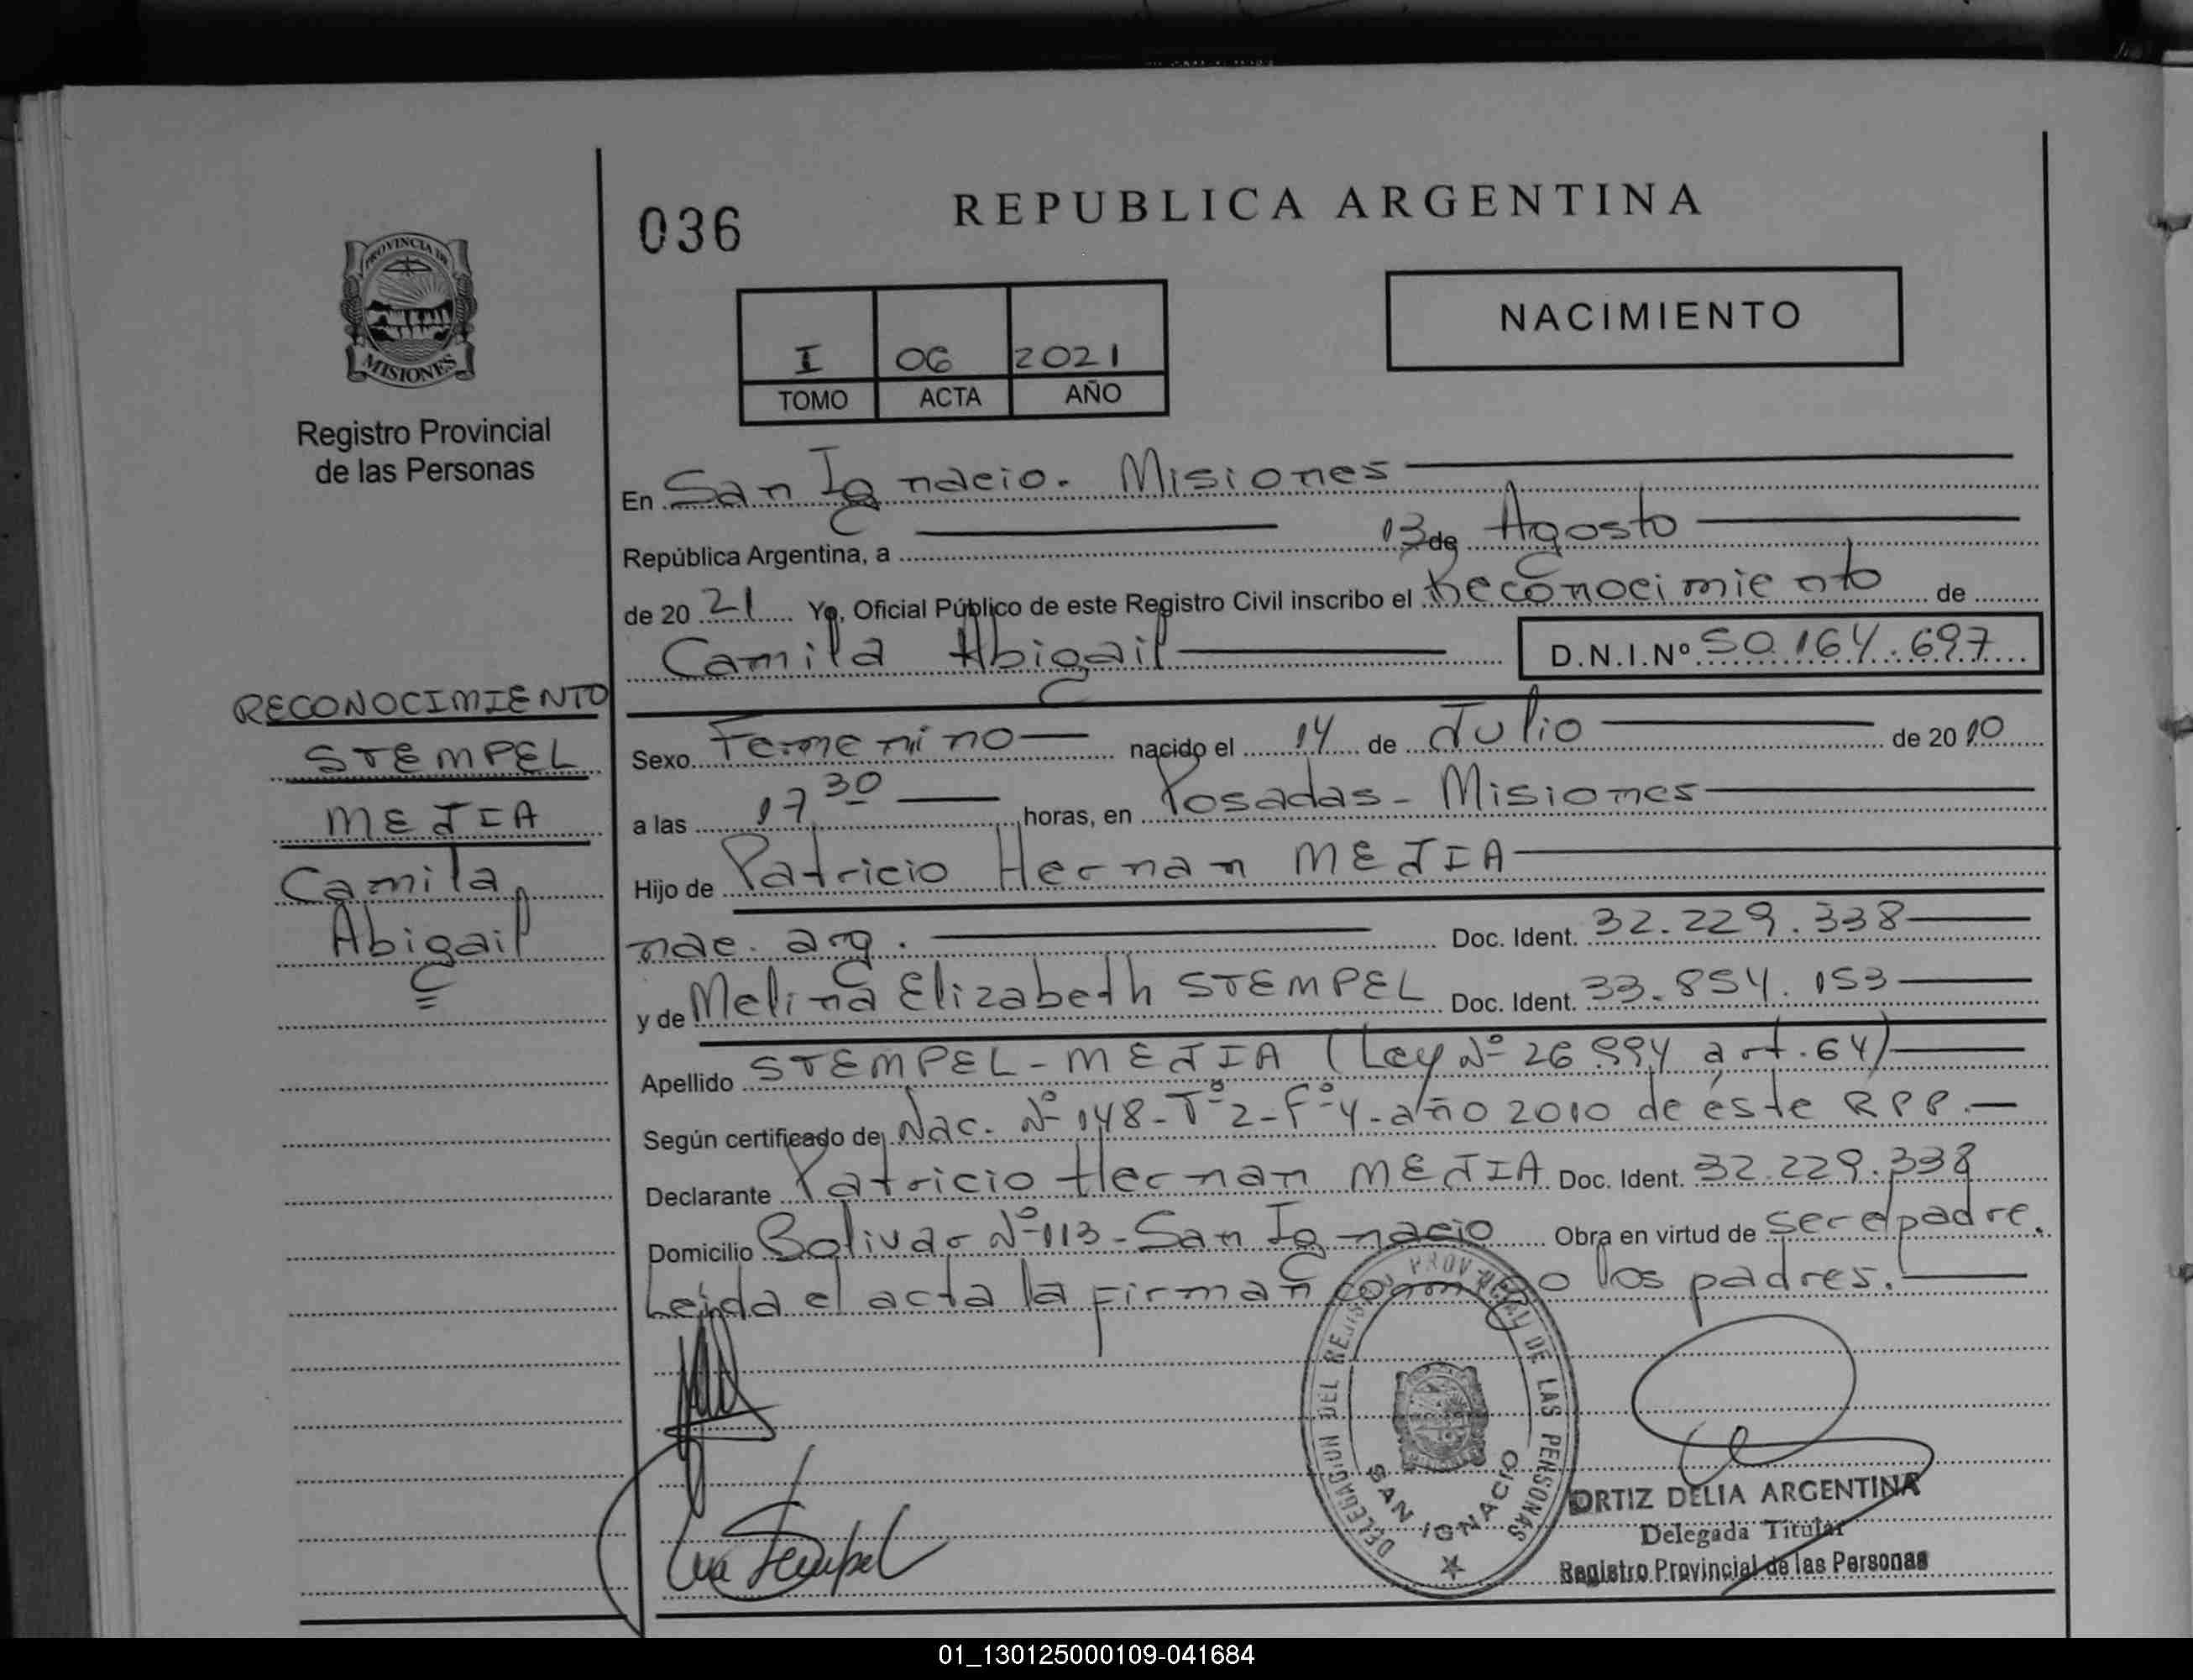 036
REPUBLICA ARGENTINA
PROVINCIA DE
MISIONES
NACIMIENTO
I 06 2021
TOMO ACTA AÑO
Registro Provincial
de las Personas
En San Ignacio. Misiones
República Argentina, a 13 de Agosto
de 20 21 Yo, Oficial Público de este Registro Civil inscribo el Reconocimiento de
Camila Abigail D.N.I.Nº 50.164.697
RECONOCIMIENTO
STEMPEL
MEJIA
Camila
Abigail
Sexo Femenino nacido el 14 de Julio de 20 10
a las 17 30 horas, en Posadas - Misiones
Hijo de Patricio Hernan MEJIA
nac. arg. Doc. Ident. 32.229.338
y de Melina Elizabeth STEMPEL Doc. Ident. 33.854.153
Apellido STEMPEL - MEJIA (Ley Nº 26.994 art. 64)
Según certificado de Nac. Nº 148 - Tº 2 - Fº 4 - año 2010 de éste RPP.
Declarante Patricio Hernan MEJIA Doc. Ident. 32.229.338
Domicilio Bolivar Nº 113 - San Ignacio Obra en virtud de ser el padre.
Leida el acta la firman conmigo los padres.
DELEGACION DEL REJISTRO PROVINCIAL DE LAS PERSONAS
SAN IGNACIO
Stempel
ORTIZ DELIA ARGENTINA
Delegada Titular
Registro Provincial de las Personas
01_130125000109-041684